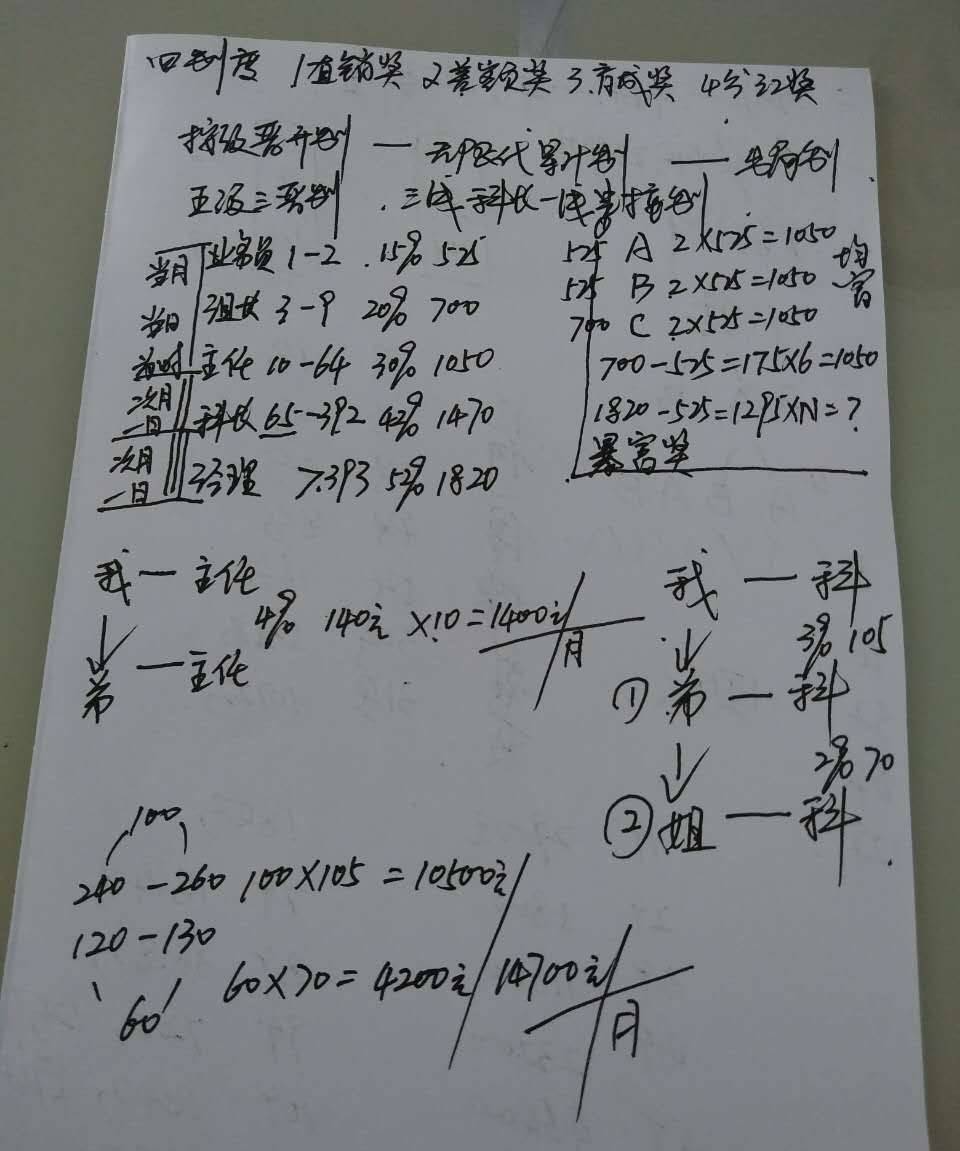 四制度 1直销奖 2差额奖 3.育成奖 4分红奖
按级晋升制 — 无限代累计制 — 出局制
五级三晋制 三代科长一代
当月 业务员 1-2 15% 525
525 A 2×525=1050 均富
当日 组长 3-9 20% 700
525 B 2×525=1050
700 C 2×525=1050
当时 主任 10-64 30% 1050
700-525=175×6=1050
次月一日 科长 65-392 42% 1470
1820-525=1295×N=?
暴富奖
次月一日 经理 >393 52% 1820
我 — 主任
4% 140元 ×10=1400元/月
↓
弟 — 主任
我 — 科
↓ 3% 105
① 弟 — 科
↓ 2% 70
② 姐 — 科
100
240-260 100×105=10500元
120-130
60 60×70=4200元 14700元/月